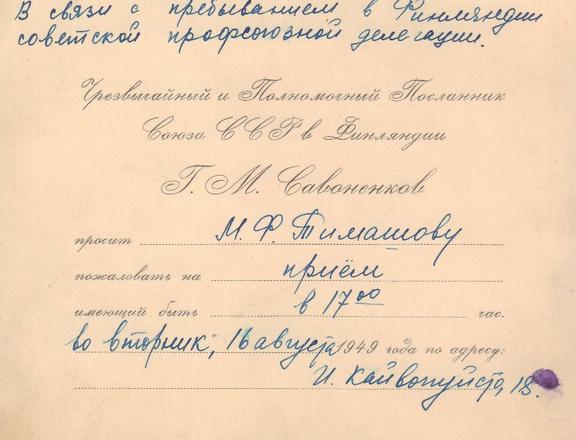 В связи с пребыванием в Финляндии
советской профсоюзной делегации.
Чрезвычайный и Полномочный Посланник
Союза ССР в Финляндии
Г. М. Савоненков
просит М. Ф. Тимашову
пожаловать на приём
имеющий быть в 17⁰⁰ час.
во вторник, 16 августа 1949 года по адресу:
И. Кайвопуйсто, 18.